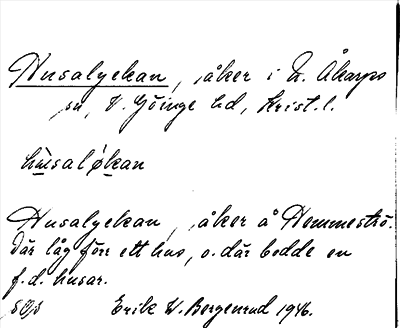 Husalyckan, åker i N. Åkarps
sn, V. Göinge hd, Krist. l.
husaløkan
Husalyckan, åker å Hemmeströ.
Där låg förr ett hus, o. där bodde en
f.d. husar.
Erik W. Bergenrud 1946.